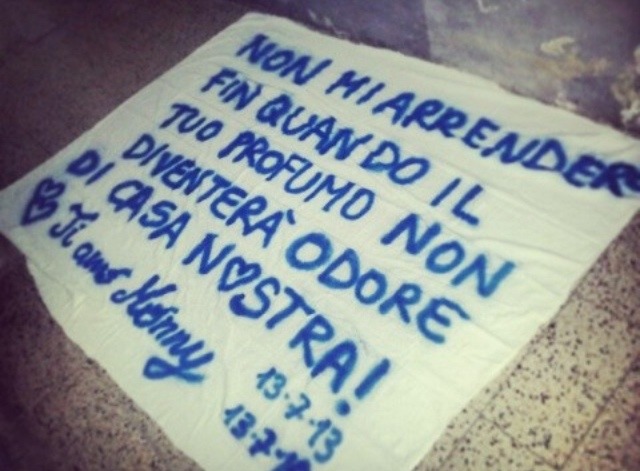 NON MI ARRENDER
FIN QUANDO IL
TUO PROFUMO NON
DIVENTERÀ ODORE
DI CASA NOSTRA!
Ti amo
13-7-13